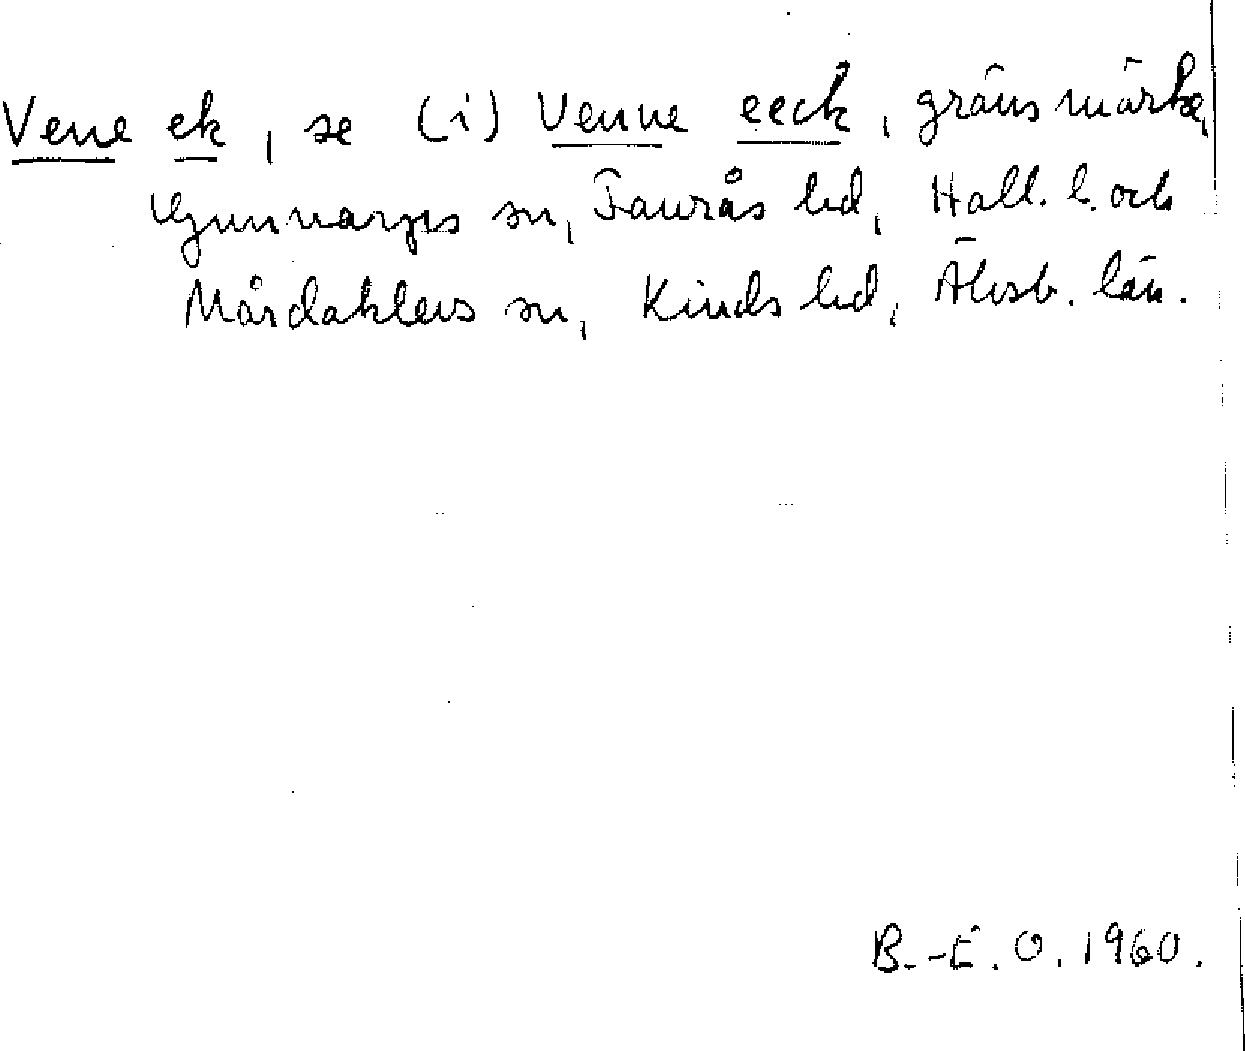 Vene ek, se (i) Venne eeck, gränsmärke,
Gunnarps sn, Faurås hd, Hall. l. och
Mårdaklevs sn, Kinds hd, Älvsb. län.
B.-E. O. 1960.